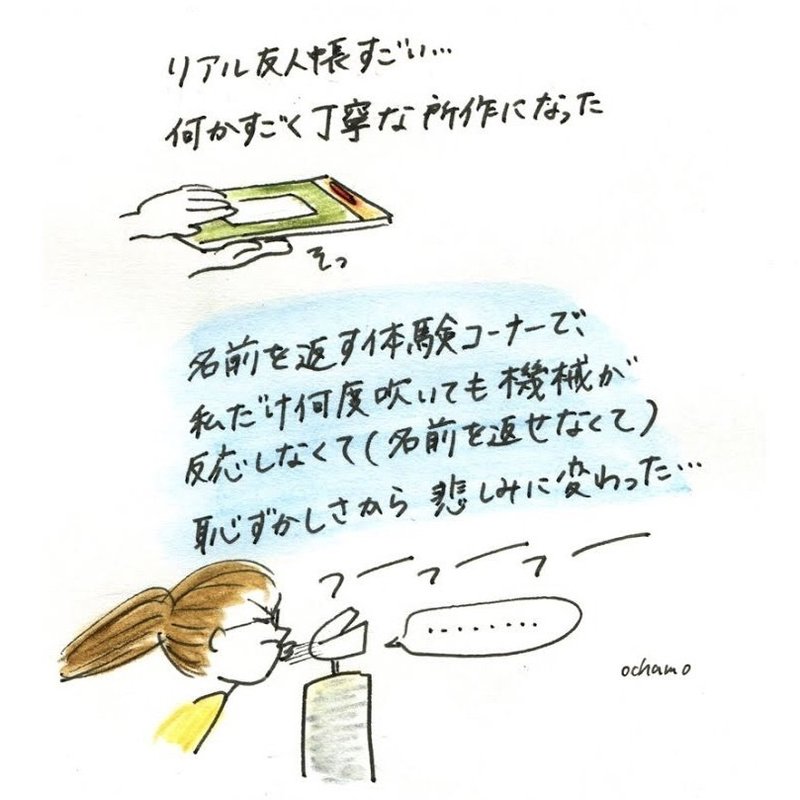 リアル友人帳すごい…
何かすごく丁寧な所作になった
そっ
名前を返す体験コーナーで、
私だけ何度吹いても機械が
反応しなくて(名前を返せなくて)
恥ずかしさから悲しみに変わった…
フーフーフー
………
ochamo